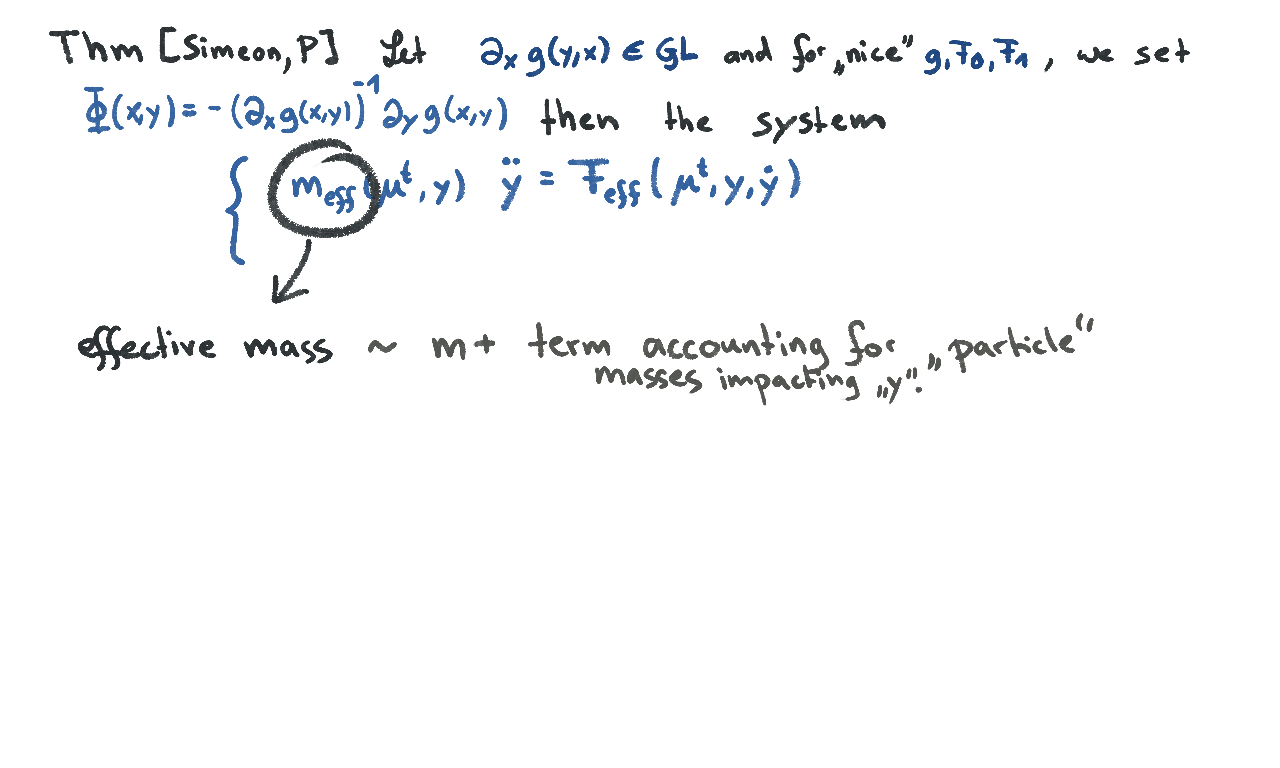 Thm [Simeon, P] Let ∂ₓ g(y,x) ∈ GL and for „nice" g, F₀, F₁, we set
Φ(x,y) = - (∂ₓg(x,y))⁻¹ ∂ᵧg(x,y) then the system
{ m_eff(μᵗ, y) ÿ = F_eff(μᵗ, y, ẏ)
effective mass ~ m + term accounting for „particle"
masses impacting „y".